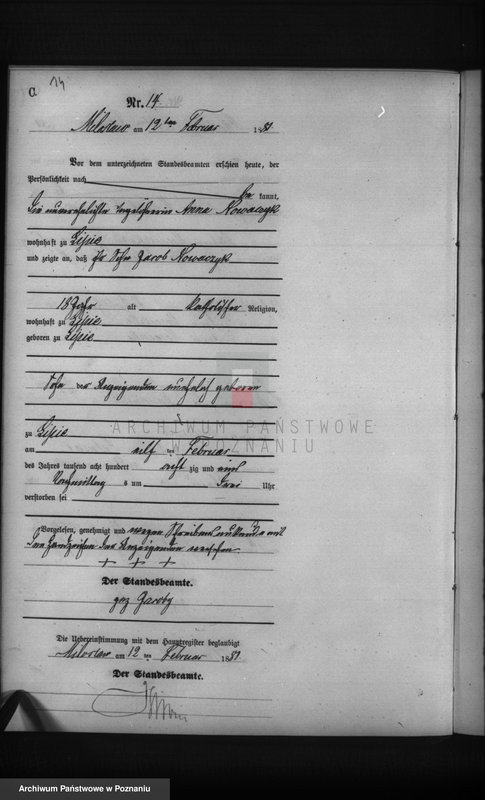 C. 14
Nr. 14
Miloslaw am 12 ten Februar 1881
Vor dem unterzeichneten Standesbeamten erschien heute, der
Persönlichkeit nach
be kannt,
die unverehelichte Anna Nowaczyk
wohnhaft zu Lipie
und zeigte an, daß ihr Sohn Jacob Nowaczyk
18 Jahr alt katholischer Religion,
wohnhaft zu Lipie
geboren zu Lipie
Sohn der Anzeigenden unehelich geboren
zu Lipie
ARCHIWUM PAŃSTWOWE
W POZNANIU
am eilf ten Februar
des Jahres tausend acht hundert acht zig und eins
Nachmittag s um drei Uhr
verstorben sei
Vorgelesen, genehmigt und wegen Schreibens mit
den Handzeichen der Anzeigenden versehen
+ + +
Der Standesbeamte.
gez
Die Uebereinstimmung mit dem Hauptregister beglaubigt
Miloslaw am 12 ten Februar 1881
Der Standesbeamte.
Archiwum Państwowe w Poznaniu